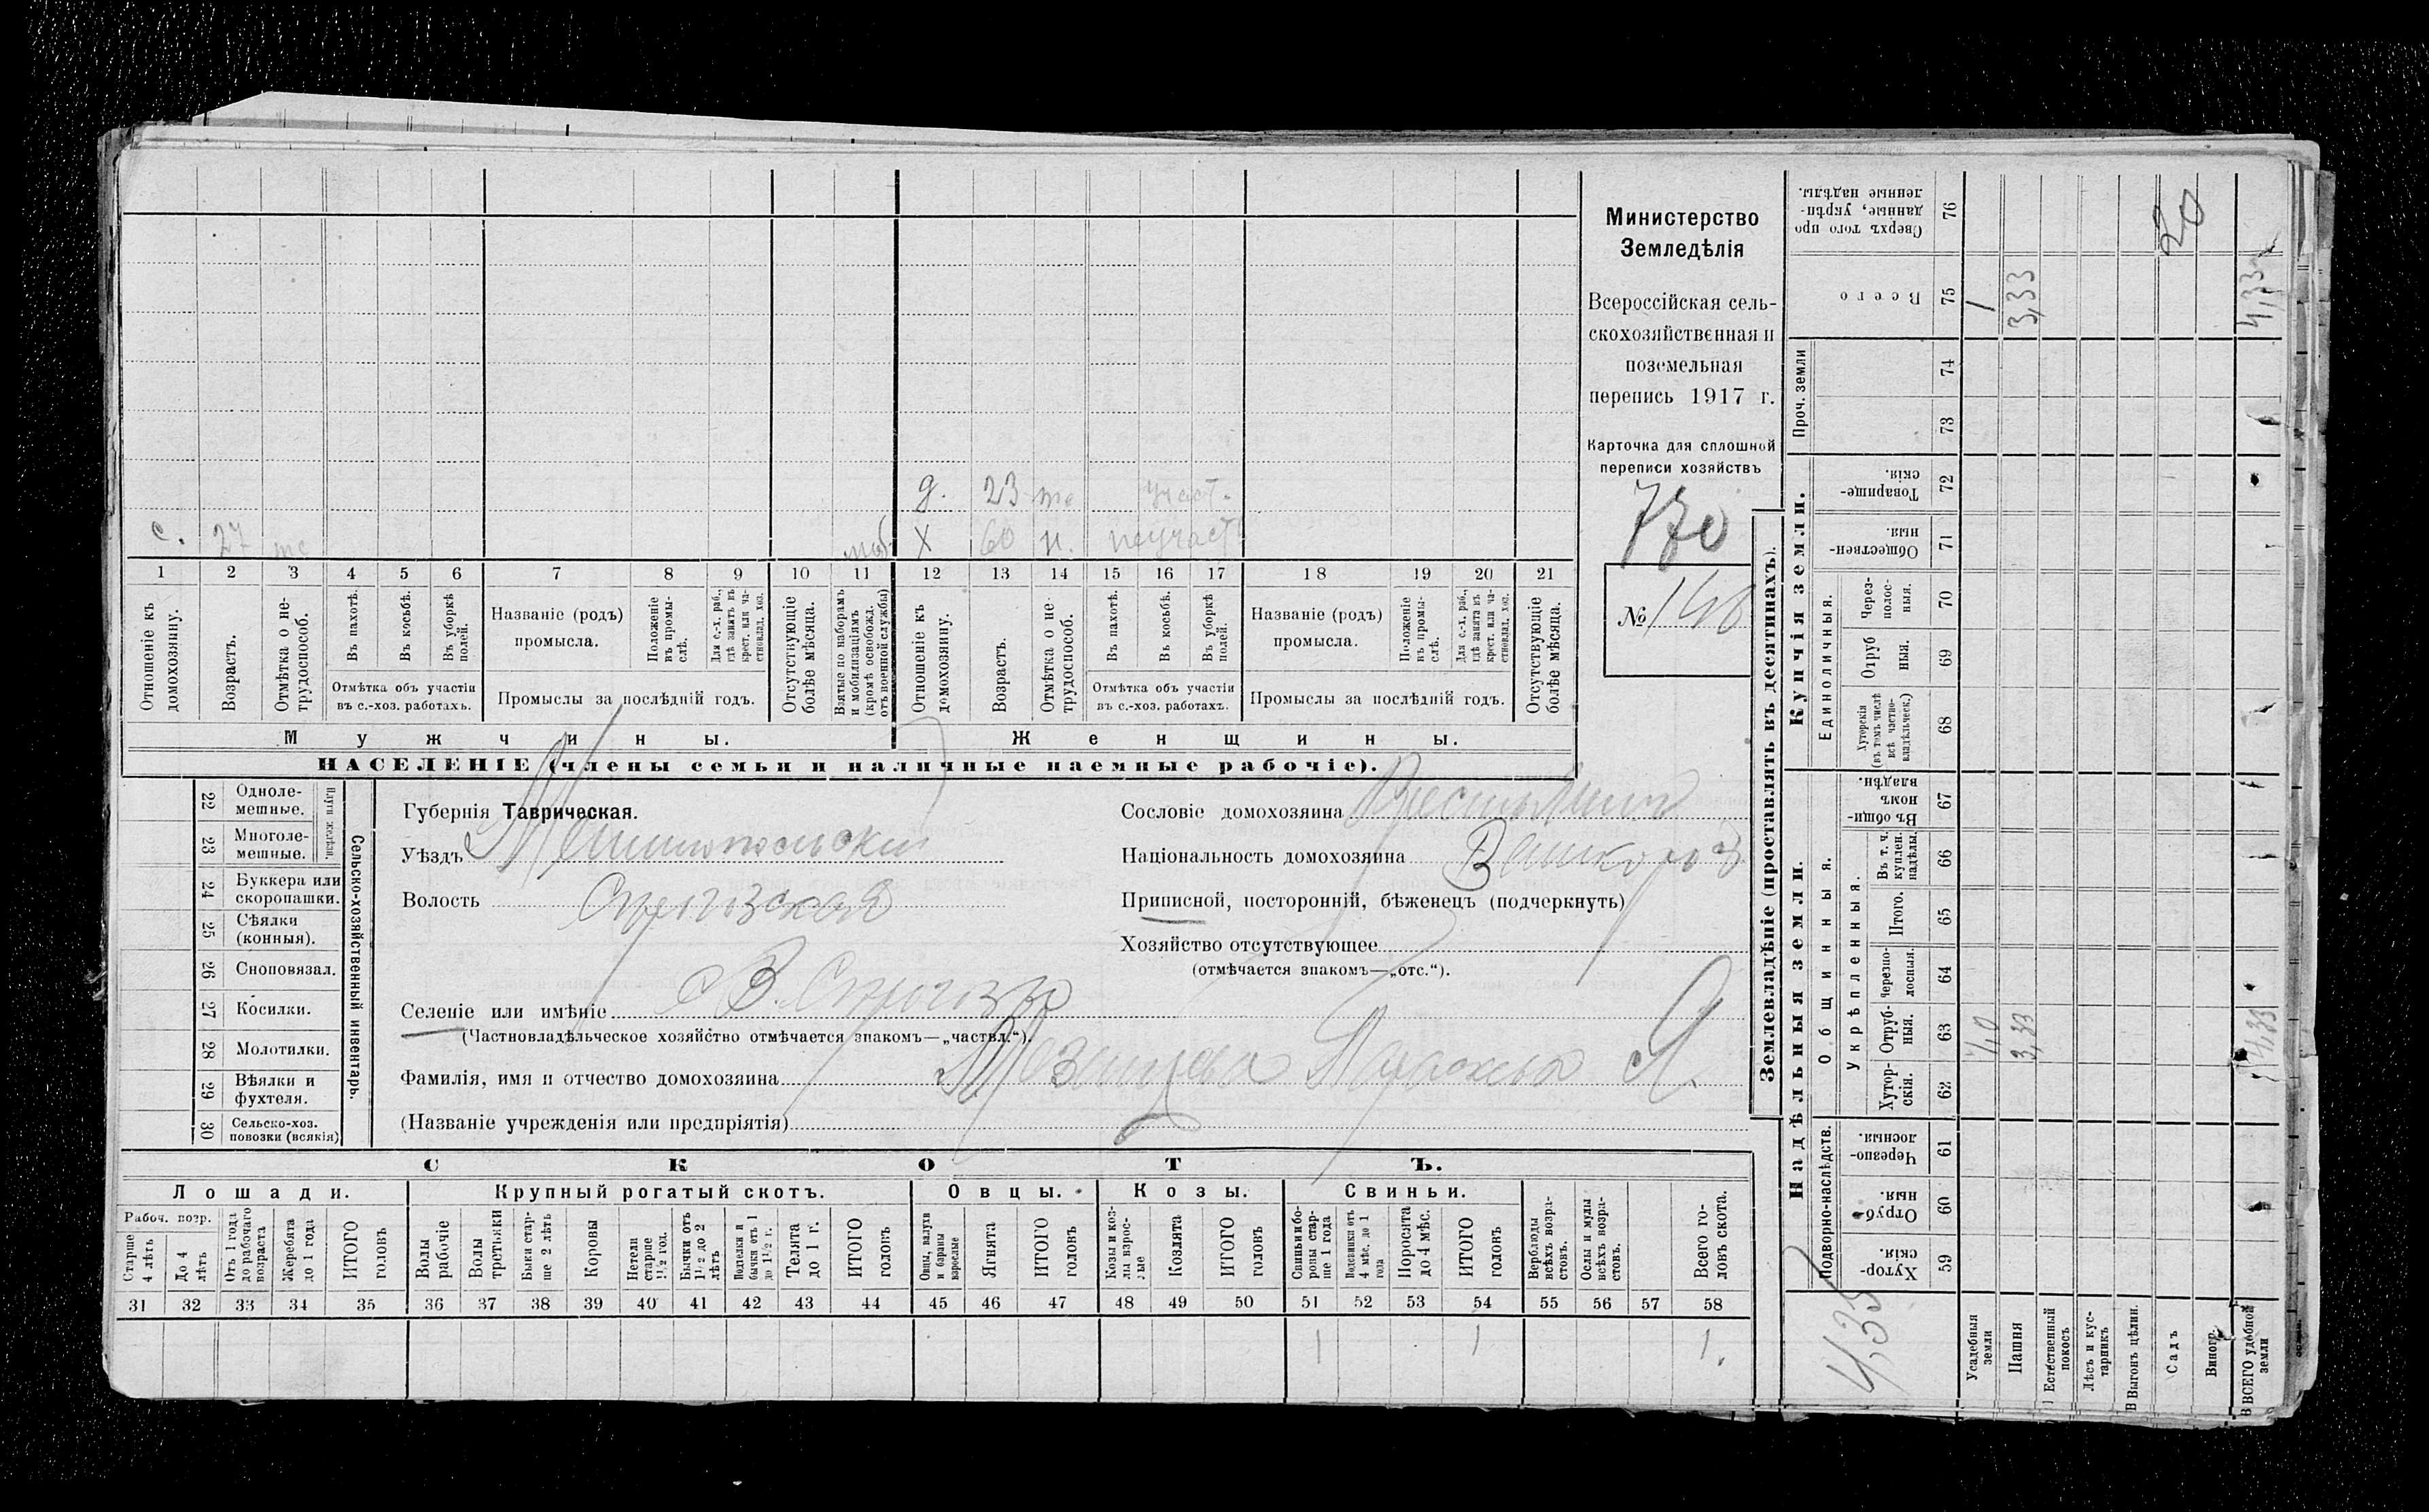 Министерство
Земледѣлія
Всероссійская сель-
скохозяйственная и
поземельная
перепись 1917 г.
Карточка для сплошной
переписи хозяйствъ
770
№ 148
с. 27
моб.
д. 23 участ.
х 60 н. неучаст.
1 2 3 4 5 6 7 8 9 10 11 12 13 14 15 16 17 18 19 20 21
Отношеніе къ домохозяину.
Возрастъ.
Отмѣтка о не-трудоспособ.
Въ пахотѣ.
Въ косьбѣ.
Въ уборкѣ полей.
Отмѣтка объ участіи въ с.-хоз. работахъ.
Названіе (родъ) промысла.
Положеніе въ промы-слѣ.
Для с.-х. раб., гдѣ занятъ въ крест. или ча-стновлад. хоз.
Промыслы за послѣдній годъ.
Отсутствующіе болѣе мѣсяца.
Взятые по наборамъ и мобилизаціямъ (кромѣ освобожд. отъ военной службы)
Отношеніе къ домохозяину.
Возрастъ.
Отмѣтка о не трудоспособ.
Въ пахотѣ.
Въ косьбѣ.
Въ уборкѣ полей.
Отмѣтка объ участіи въ с.-хоз. работахъ.
Названіе (родъ) промысла.
Положеніе въ промы-слѣ.
Для с.-х. раб., гдѣ занятъ въ крест. или ча-стновлад. хоз.
Промыслы за послѣдній годъ.
Отсутствующіе болѣе мѣсяца.
Мужчины.
Женщины.
НАСЕЛЕНІЕ (члены семьи и наличные наемные рабочіе).
22 Одноле-мешные.
23 Многоле-мешные.
Плуги желѣзн.
24 Буккера или скоропашки.
25 Сѣялки (конныя).
26 Сноповязал.
27 Косилки.
28 Молотилки.
29 Вѣялки и фухтеля.
30 Сельско-хоз. повозки (всякія)
Сельско-хозяйственный инвентарь.
Губернія Таврическая.
Уѣздъ Мелитопольскій
Волость
Селеніе или имѣніе
(Частновладѣльческое хозяйство отмѣчается знакомъ—„частвл.“).
Фамилія, имя и отчество домохозяина
(Названіе учрежденія или предпріятія)
Сословіе домохозяина
Національность домохозяина
Приписной, посторонній, бѣженецъ (подчеркнуть)
Хозяйство отсутствующее
(отмѣчается знакомъ—„отс.“).
СКОТЪ.
Лошади.
Крупный рогатый скотъ.
Овцы.
Козы.
Свиньи.
Рабоч. возр.
Старше 4 лѣтъ
До 4 лѣтъ
Отъ 1 года до рабочаго возраста
Жеребята до 1 года
ИТОГО головъ
Волы рабочіе
Волы третьяки
Быки стар-ше 2 лѣтъ
Коровы
Нетели старше 1½ год.
Бычки отъ 1½ до 2 лѣтъ
Подтелки и бычки отъ 1 до 1½ г.
Телята до 1 г.
ИТОГО головъ
Овцы, валухи и бараны взрослые
Ягнята
ИТОГО головъ
Козы и коз-лы взрос-лые
Козлята
ИТОГО головъ
Свиньи и бо-ровы стар-ше 1 года
Подсвинки отъ 4 мѣс. до 1 года
Поросята до 4 мѣс.
ИТОГО головъ
Верблюды всѣхъ возра-стовъ.
Ослы и мулы всѣхъ возра-стовъ.
Всего го-ловъ скота.
31 32 33 34 35 36 37 38 39 40 41 42 43 44 45 46 47 48 49 50 51 52 53 54 55 56 57 58
1 1 1.
Землевладѣніе (проставлять въ десятинахъ).
Надѣльныя земли.
Купчія земли.
Подворно-наслѣдств.
Общинныя.
Укрѣпленныя.
Единоличныя.
Проч. земли
59 Хутор-скія.
60 Отруб-ныя.
61 Черезпо-лосныя.
62 Хутор-скія.
63 Отруб-ныя.
64 Черезпо-лосныя.
65 Итого.
66 Въ т. ч. куплен. надѣлы.
67 Въ общи-номъ владѣн.
68 Хуторскія (въ томъ числѣ всѣ частно-владѣльческ.)
69 Отруб ныя.
70 Через-полос-ныя.
71 Обществен-ныя
72 Товарище-скія.
73
74
75 Всего
76 Сверхъ того про данные, укрѣп-ленные надѣлы.
Усадебныя земли 1,0 1
Пашня 3,33 3,33
Естественный покосъ
Лѣсъ и кус-тарникъ
Выгонъ цѣлин.
Садъ
Виногр.
ВСЕГО удобной земли 4,33 4,33
20
4,33